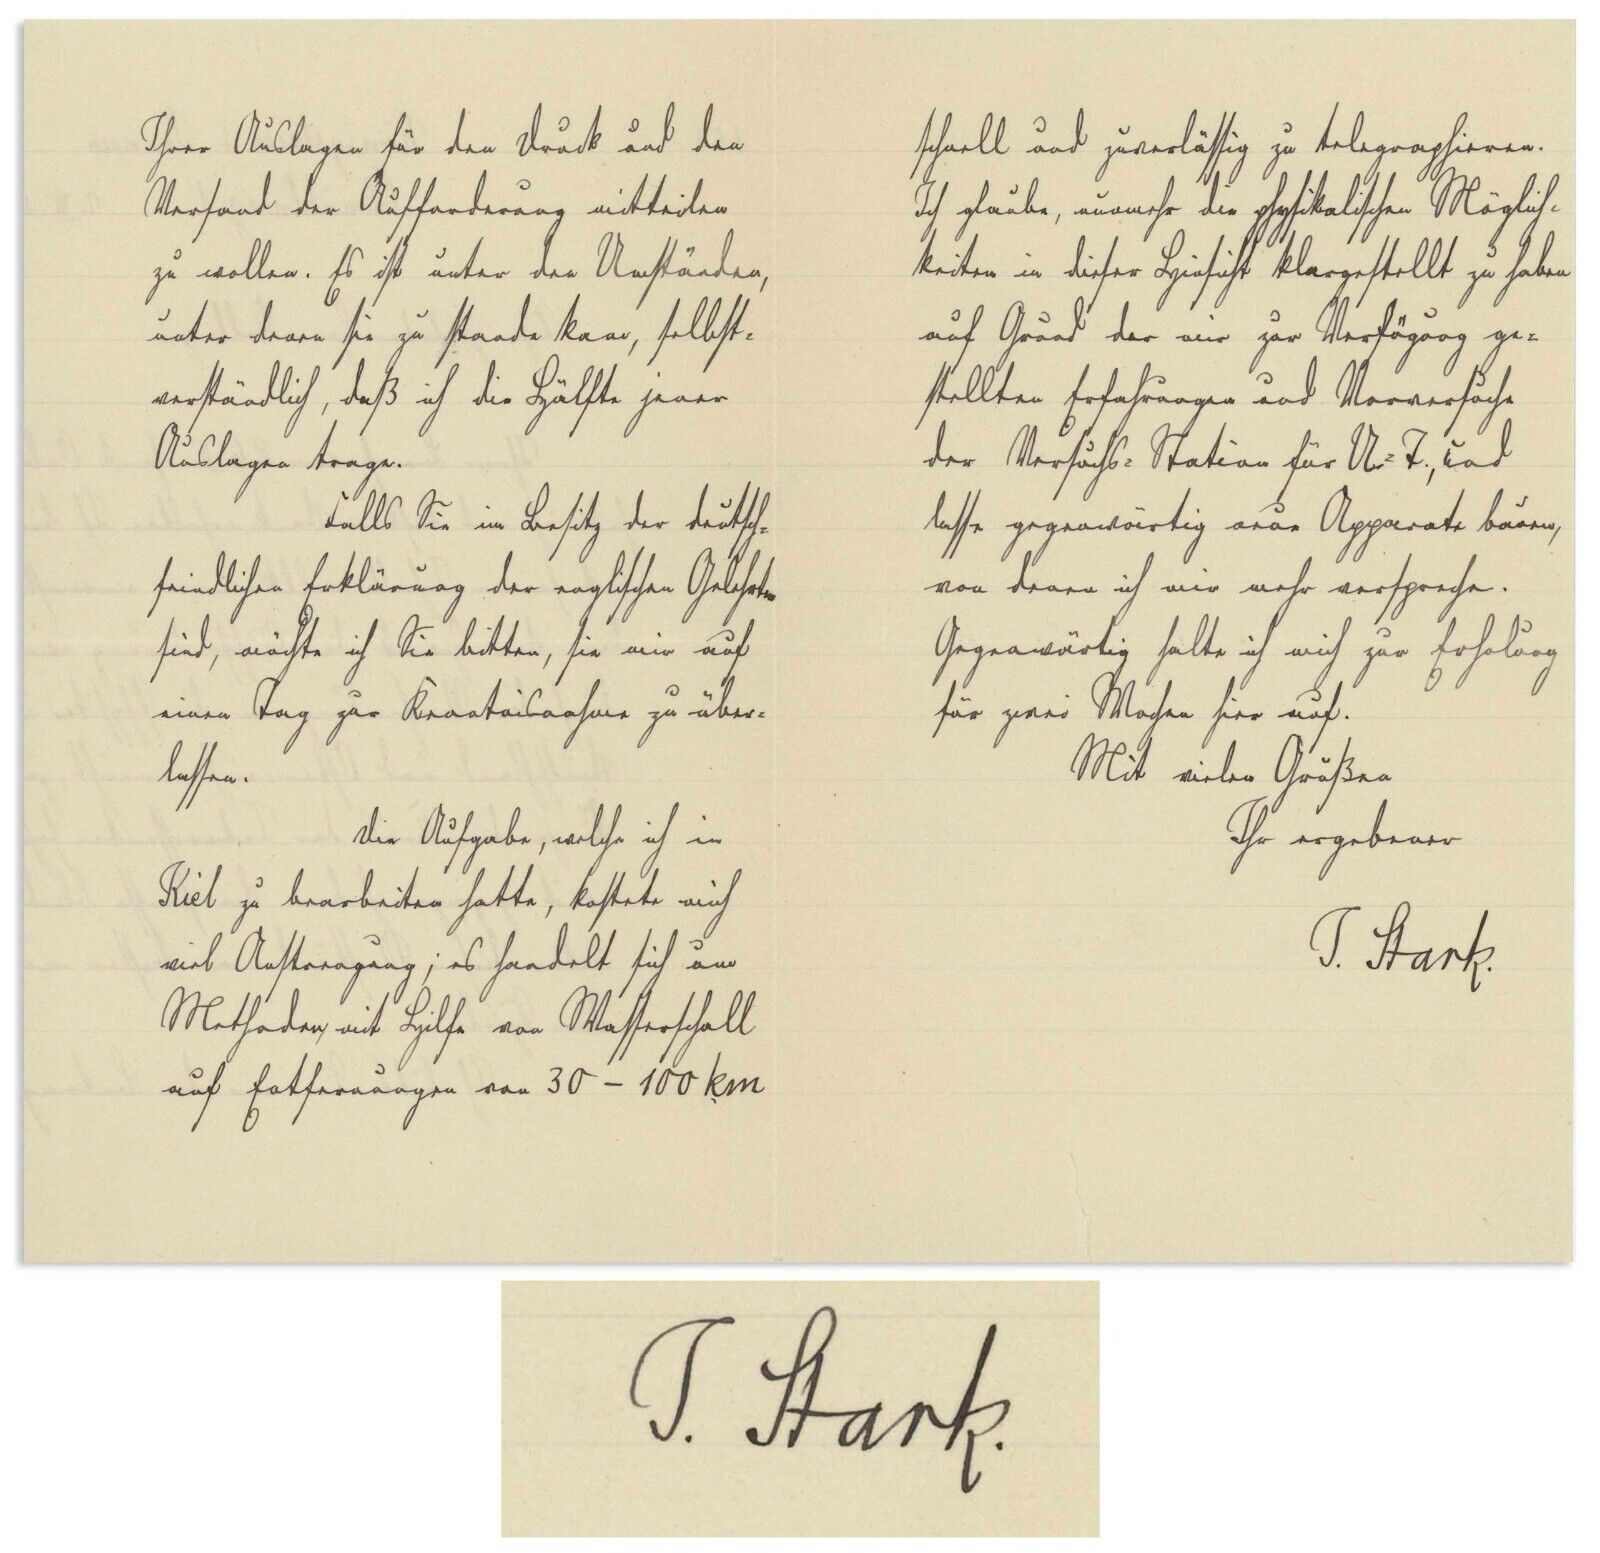 Ihrer Auslagen für den Druck und den
Versand der Aufforderung mitteilen
zu wollen. Es ist unter den Umständen,
unter denen sie zu stande kam, selbst-
verständlich, daß ich die Hälfte jener
Auslagen trage.
Falls Sie im Besitz der deutsch-
feindlichen Erklärung der englischen Gelehrten
sind, möchte ich Sie bitten, sie mir auf
einen Tag zur Kenntnisnahme zu über-
lassen.
Die Aufgabe, welche ich in
Kiel zu bearbeiten hatte, kostete mich
viel Anstrengung; es handelt sich um
Methoden, mit Hilfe von Wasserschall
auf Entfernungen von 30 – 100 km
schnell und zuverlässig zu telegraphieren.
Ich glaube, nunmehr die physikalischen Möglich-
keiten in dieser Hinsicht klargestellt zu haben
auf Grund der mir zur Verfügung ge-
stellten Erfahrungen und Vorversuche
der Versuchs-Station für U.-T., und
lasse gegenwärtig neue Apparate bauen,
von denen ich mir mehr verspreche.
Gegenwärtig halte ich mich zur Erholung
für zwei Wochen hier auf.
Mit vielen Grüßen
Ihr ergebener
J. Stark.
J. Stark.